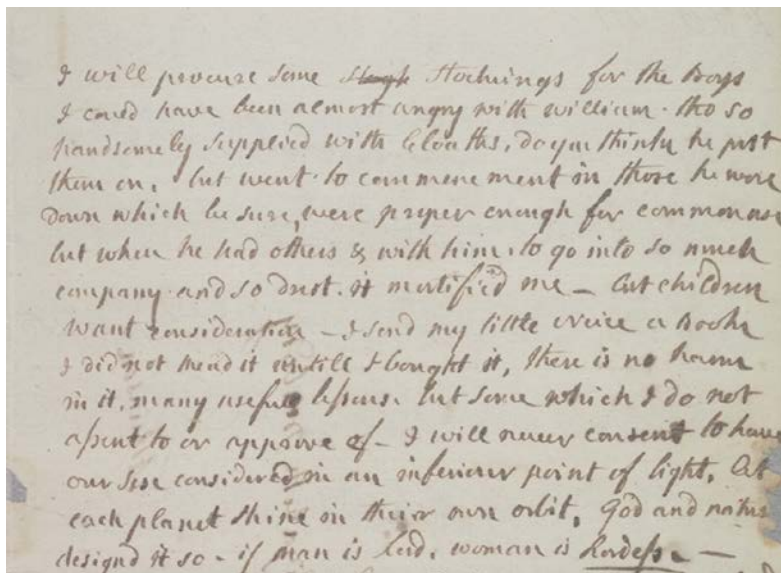 I will procure some Stockings for the Boys
I could have been almost angry with william. tho so
handsomely supplied with Cloaths, do you think he put
them on. but went to commencement in those he wore
down which be sure, were proper enough for common use
but when he had others & with him. to go into so much
company and so drest. it mortified me – but children
want consideration – I send my little neice a Book
I did not read it untill I bought it, there is no harm
in it, many usefull lessons. but some which I do not
assent to or approve of – I will never consent to have
our sex considered in an inferiour point of light. Let
each planet shine in their own orbit, God and nature
designd it so – if man is Lord, woman is Lordess –